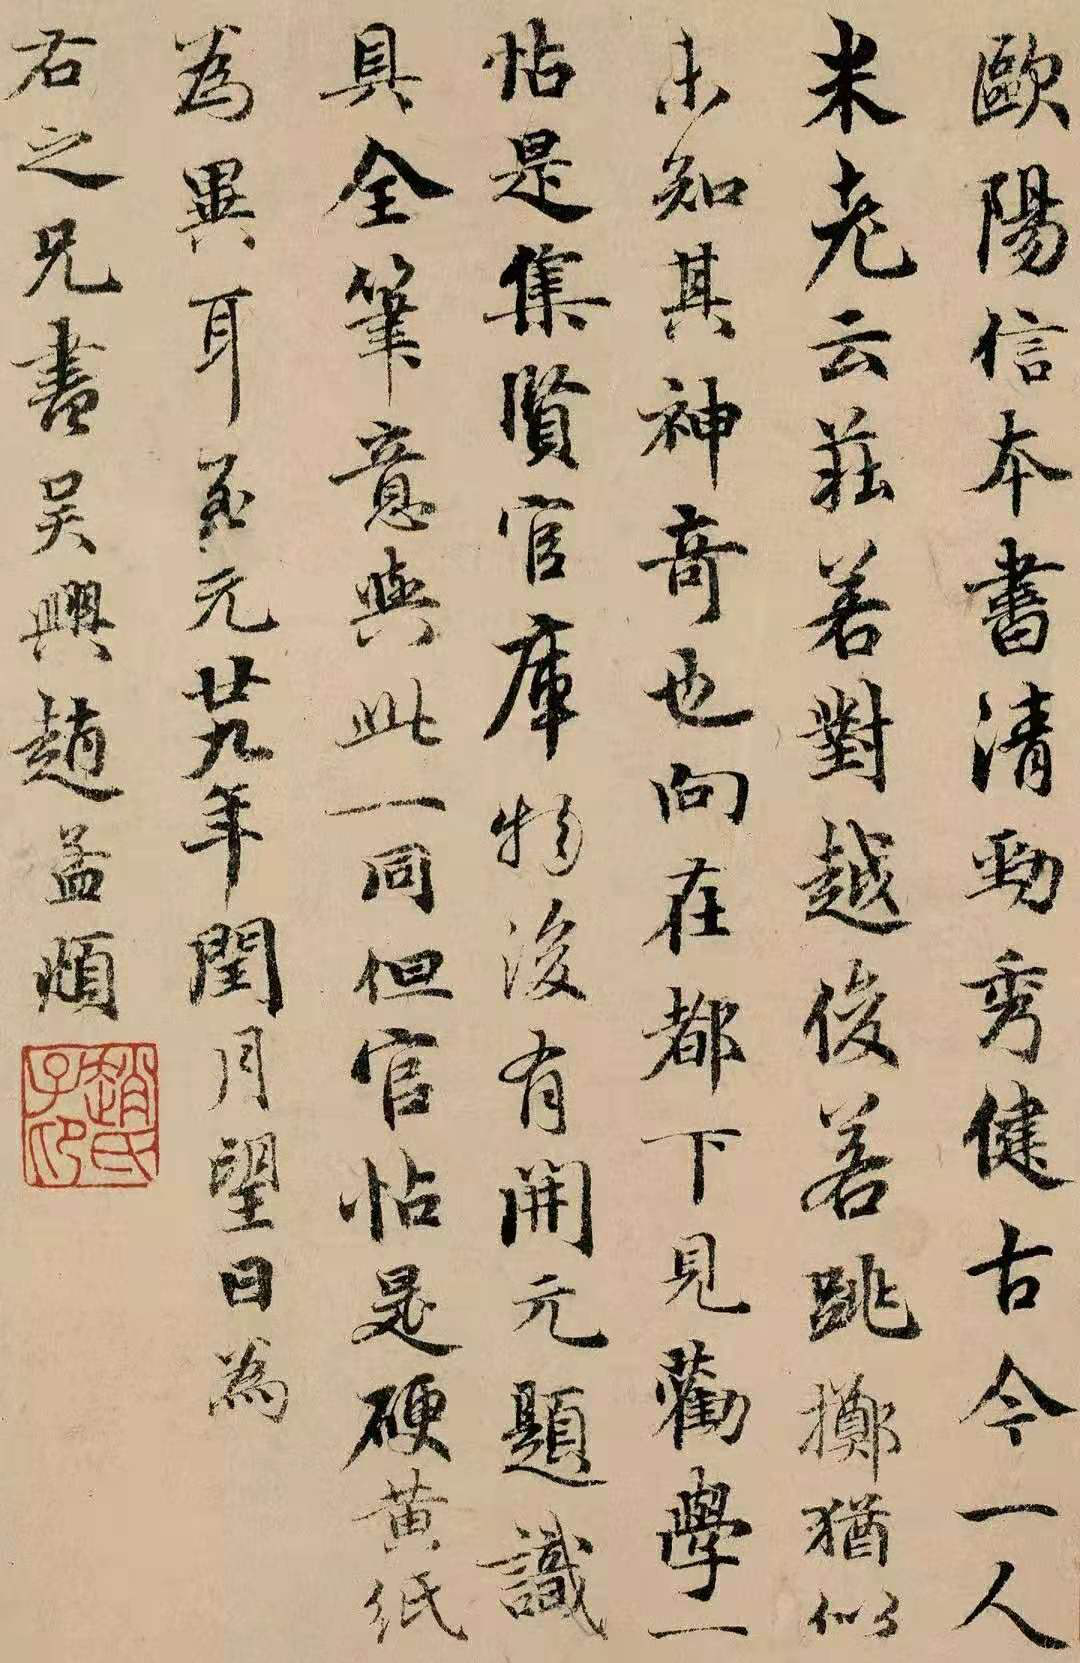 歐陽信本書清勁秀健古今一人
米老云莊若對越俊若跳擲猶似
未知其神奇也向在都下見勸學一
帖是集賢官庫物後有開元題識
具全筆意與此一同但官帖是硬黄紙
為異耳至元廿九年閏月望日為
右之兄書吴興趙孟頫
趙氏子昂